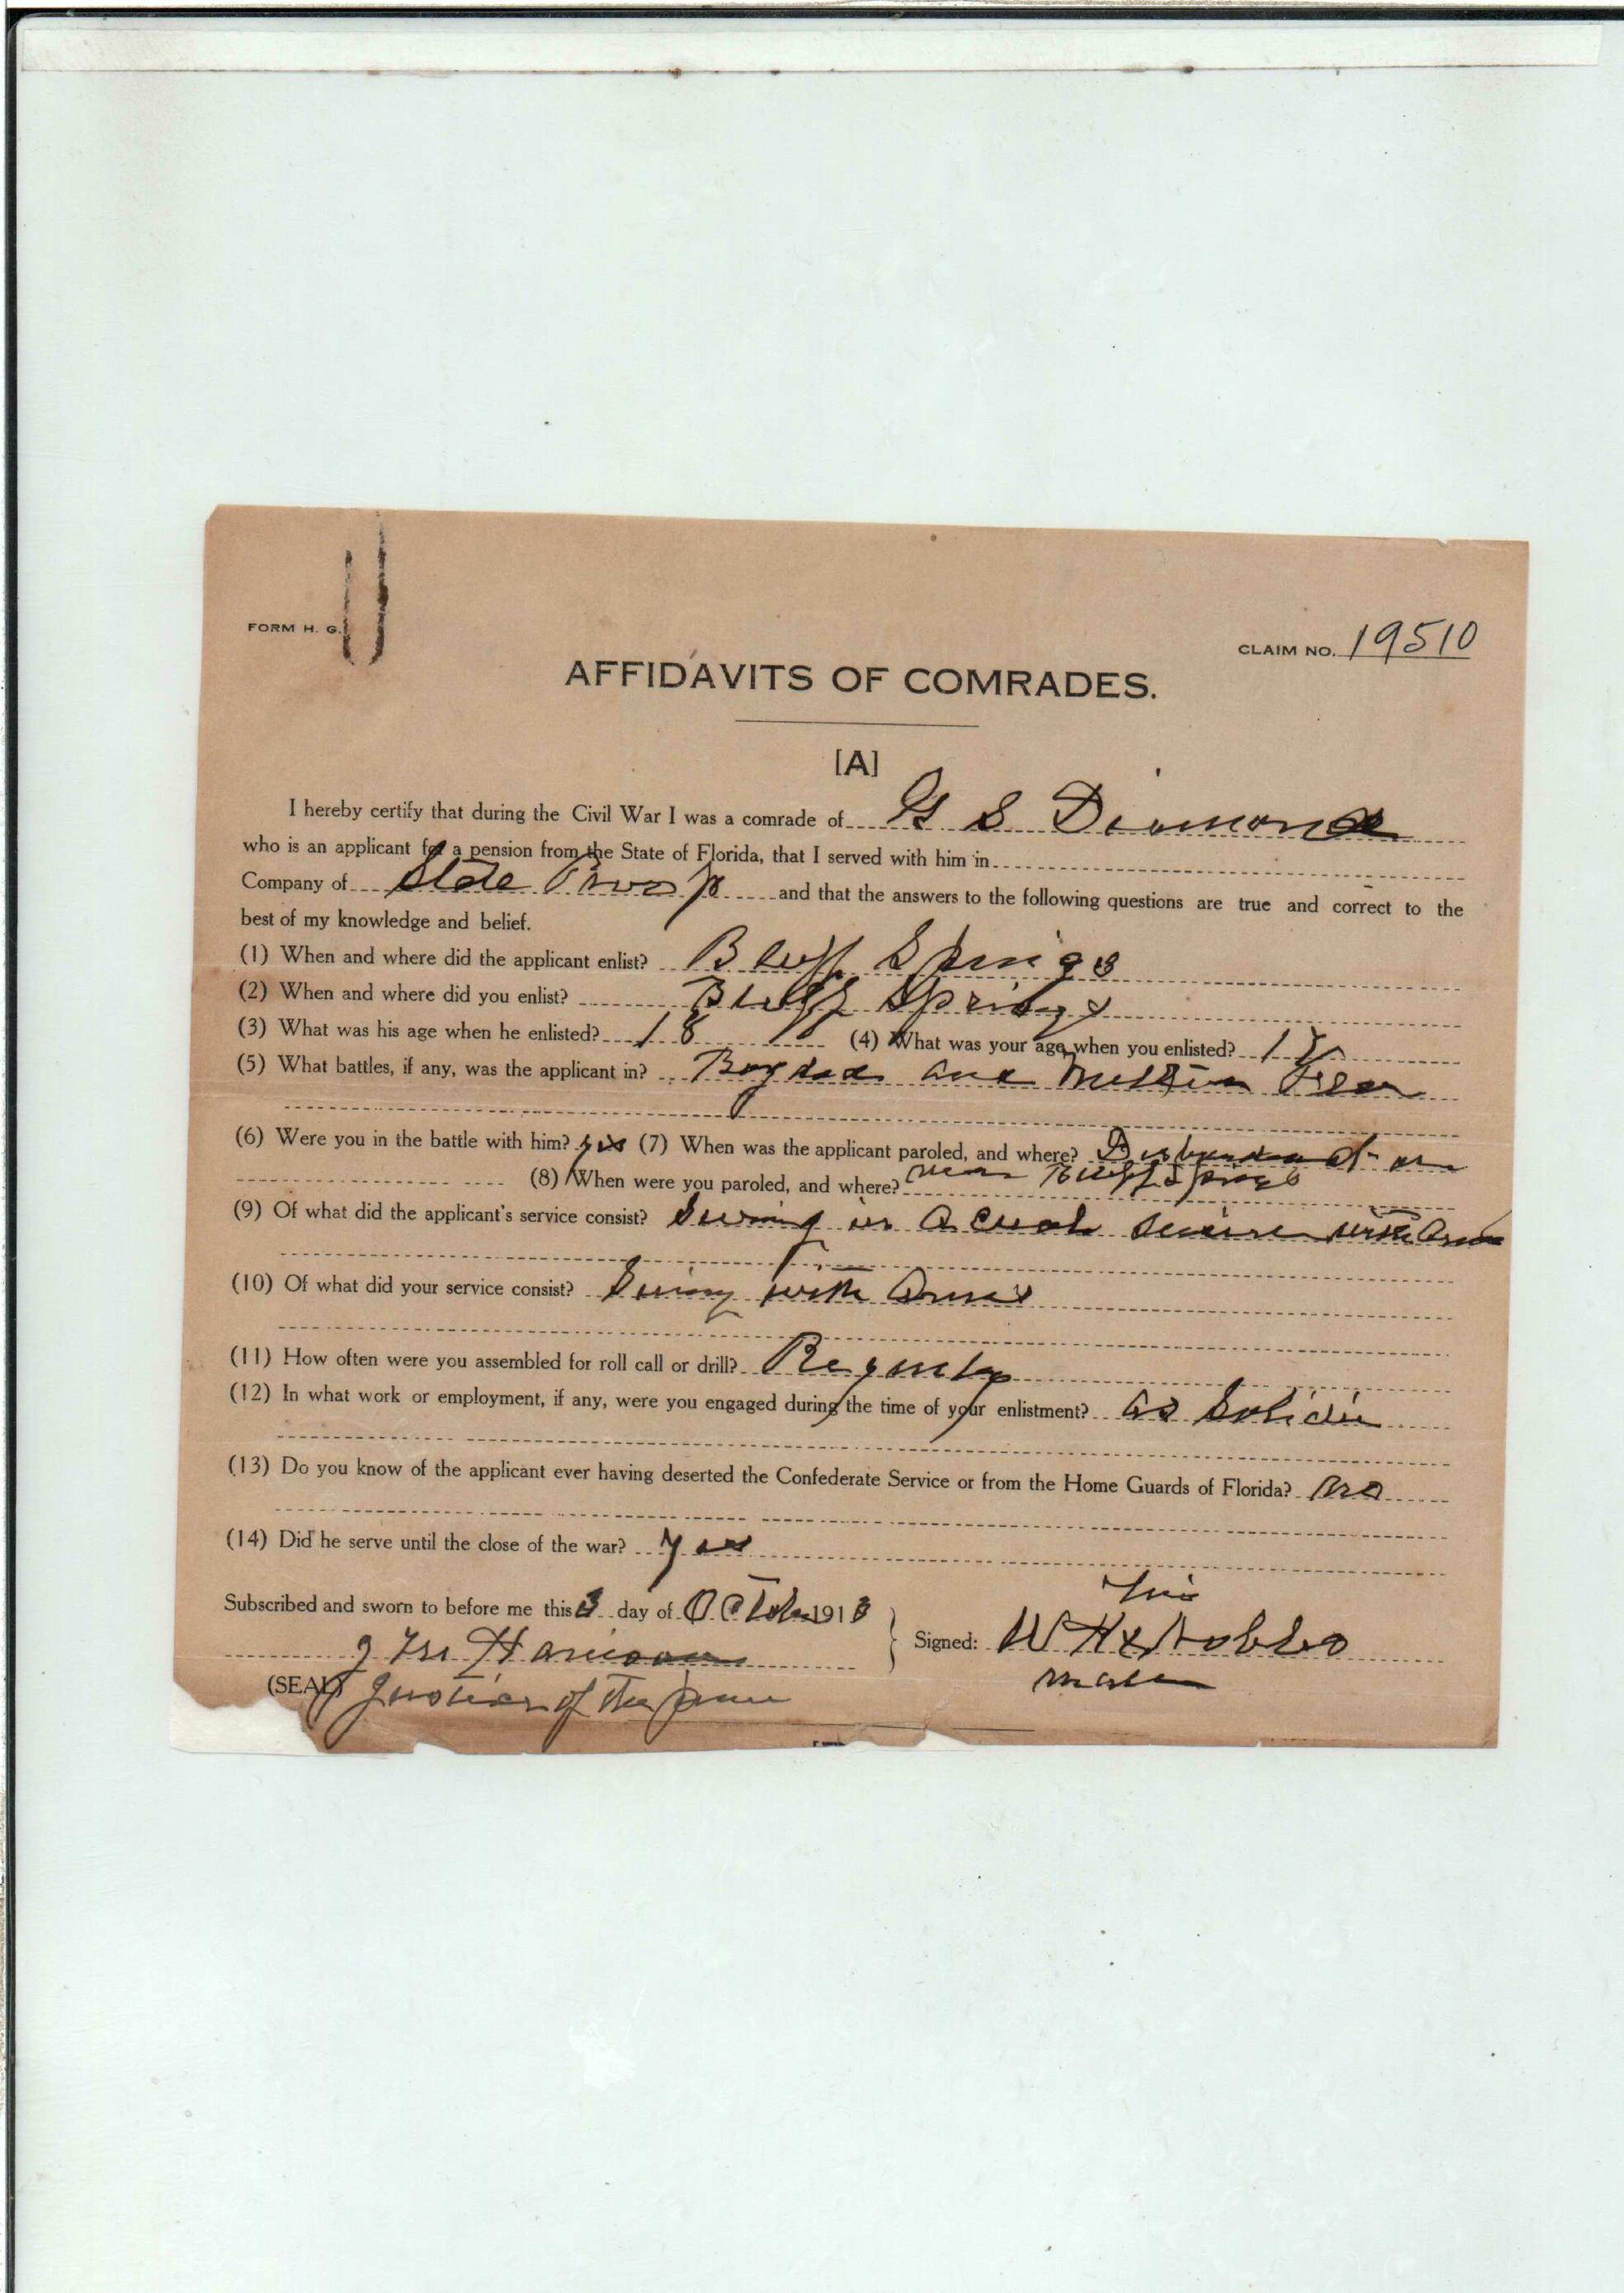 FORM H. G.
CLAIM NO. 19510
AFFIDAVITS OF COMRADES.
[A]
I hereby certify that during the Civil War I was a comrade of G S Diamond
who is an applicant for a pension from the State of Florida, that I served with him in
Company of State Troop and that the answers to the following questions are true and correct to the
best of my knowledge and belief.
(1) When and where did the applicant enlist? Bluff Springs
(2) When and where did you enlist? Bluff Springs
(3) What was his age when he enlisted? 18 (4) What was your age when you enlisted?
(5) What battles, if any, was the applicant in? Bagdad and Milton
(6) Were you in the battle with him? yes (7) When was the applicant paroled, and where? Disbanded at or
(8) When were you paroled, and where? near Bluff Springs
(9) Of what did the applicant's service consist? in with
(10) Of what did your service consist? with Arms
(11) How often were you assembled for roll call or drill?
(12) In what work or employment, if any, were you engaged during the time of your enlistment? as
(13) Do you know of the applicant ever having deserted the Confederate Service or from the Home Guards of Florida? no
(14) Did he serve until the close of the war? yes
Subscribed and sworn to before me this 3 day of 1913
his
Signed: W H x Nobles
mark
Harrison
(SEAL) Justice of the peace